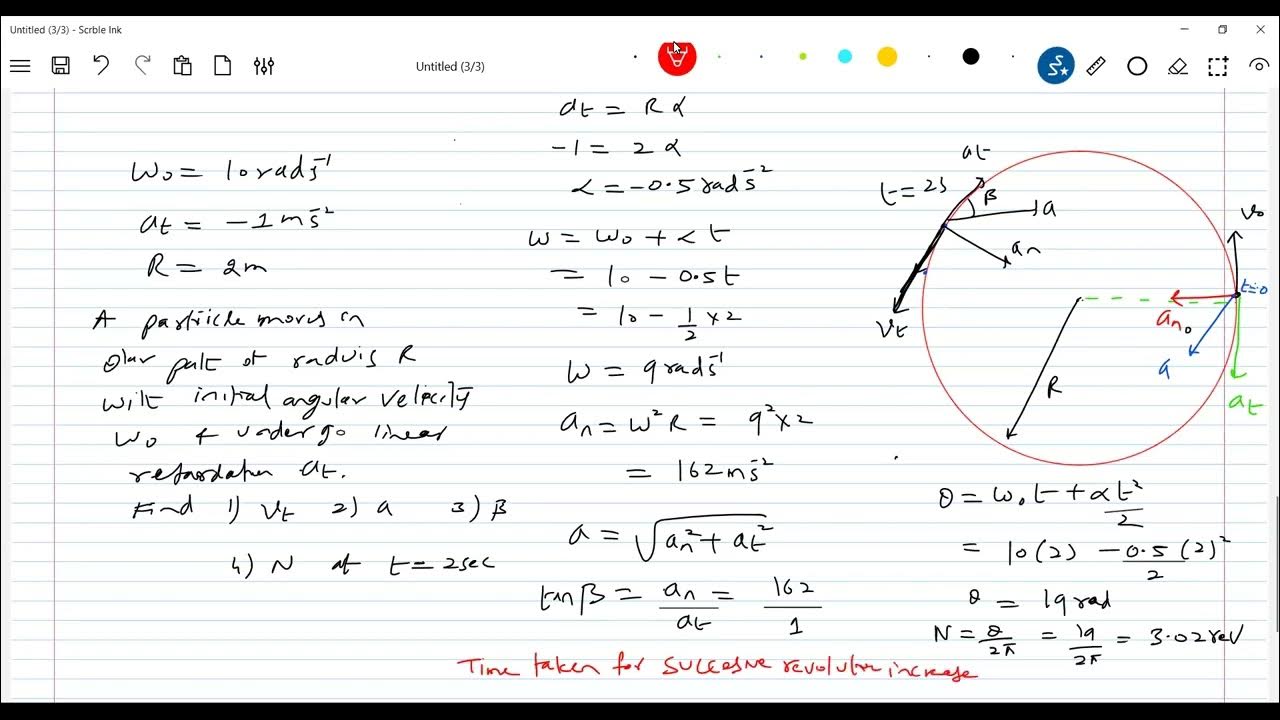 Untitled (3/3) - Scrble Ink
Untitled (3/3)
ω₀ = 10 rad s⁻¹
at = -1 m s⁻²
R = 2m
A particle moves in
Olar path of radius R
with initial angular velocity
ω₀ & undergo linear
retardation at.
Find 1) Vt 2) a 3) β
4) N at t = 2sec
at = R α
-1 = 2 α
α = -0.5 rad s⁻²
ω = ω₀ + α t
= 10 - 0.5t
= 10 - 1/2 × 2
ω = 9 rad s⁻¹
an = ω² R = 9² × 2
= 162 m s⁻²
a = √(an² + at²)
tan β = an/at = 162/1
Time taken for succesive revolution increase
at
t = 2s
β
a
an
Vt
R
V₀
t=0
an₀
a
at
θ = ω₀ t + αt²/2
= 10(2) - 0.5(2)²/2
θ = 19 rad
N = θ/2π = 19/2π = 3.02 rev